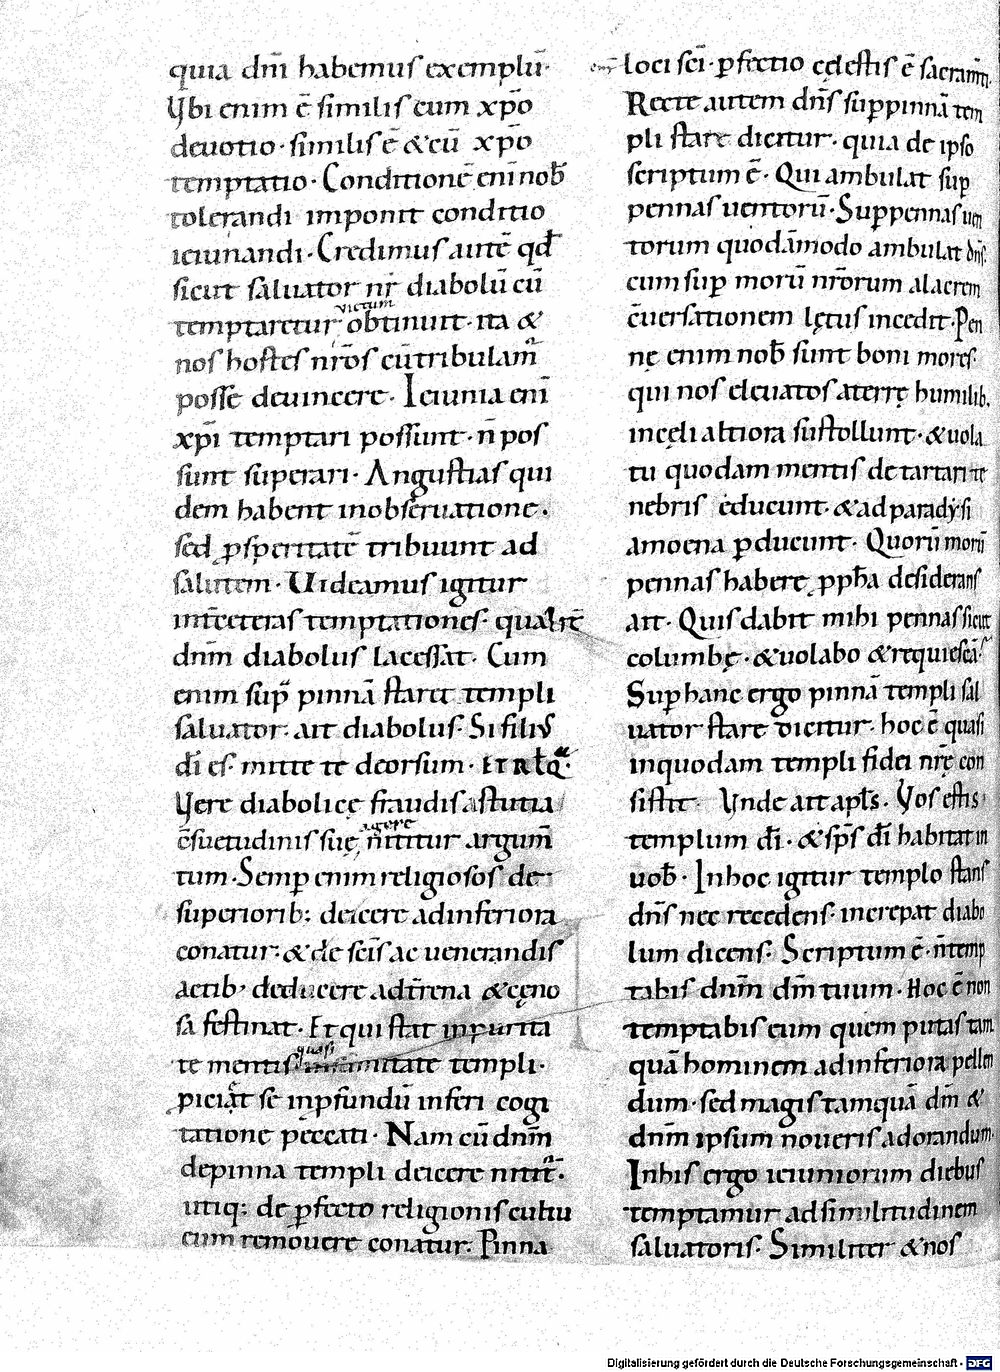 quia dnī habemuſ exemplū·
Vbi enim ē ſimiliſ cum xp̄o
deuotio· ſimiliſ ē &cū xp̄o
temptatio· Conditionē enī nob̄
tolerandi imponit conditio
ieiunandi· Credimuſ autē qđ
ſicut ſaluator nr̄ diabolū cū
temptaretur victum obtinuit· ita &
noſ hoſteſ nr̄oſ cū tribulam̄
poſſe deuincere· Ieiunia enī
xp̄i temptari poſſunt· n̄ poſ
ſunt ſuperari· Anguſtiaſ qui
dem habent inobſeruatione·
ſed ꝓſperitatē tribuunt ad
ſalutem· Uideamuſ igitur
int̄ ceteraſ temptationeſ· qualit̄
dnm̄ diaboluſ laceſſat· Cum
enim ſup̄ pinnā ſtaret templi
ſaluator· ait diaboluſ· Si filiuſ
dī eſ· mitte te deorſum· ET RLQ·
Vere diabolicę fraudiſ aſtutia
c̄ſuetudiniſ ſuę agere nititur argum̄
tum· Semꝑ enim religioſoſ de
ſuperiorib; deicere adinferiora
conatur· & de ſcīſ ac uenerandiſ
actib; deducere adt̄rena &cęno
ſa feſtinat· Et qui ſtat inpurita
te mentiſ quaſi inſum̄itate templi·
p̄cipiat ſe inꝓfundū inferi cogi
tatione peccati· Nam cū dnm̄
depinna templi deicere nitit̄·
utiq; de ꝑfecto religioniſ cultu
eum remouere conatur· Pinna
enī loci ſcī· ꝑfectio cęleſtiſ ē ſacram̄ti·
Recte autem dn̄ſ ſuꝑ pinnā tem
pli ſtare dicitur· quia de ipſo
ſcriptum ē· Qui ambulat ſuꝑ
pennaſ uentorū· Suꝑ pennaſ uen
torum quodāmodo ambulat dn̄ſ·
cum ſuꝑ morū nr̄orum alacrem
c̄uerſationem lętuſ incedit· Pen
nę enim nob̄ ſunt boni moreſ·
qui noſ eleuatoſ aterrę humilib;
incęli altiora ſuſtollunt· &uola
tu quodam mentiſ de tartari te
nebriſ educunt· &ad paradyſi
amoena ꝑducunt· Quorū morū
pennaſ habere ꝓph̄a deſideranſ
ait· Quiſ dabit mihi pennaſ ſicut
columbę· &uolabo &requieſcā?
Suꝑ hanc ergo pinnā templi ſal
uator ſtare dicitur· hoc ē quaſi
inquodam templi fidei nr̄ę con
ſiſtit· Vnde ait apl̄ſ· Voſ eſtiſ
templum dī· & ſp̄ſ dī habitat in
uob̄· Inhoc igitur templo ſtanſ
dn̄ſ nec recedenſ· increpat diabo
lum dicenſ· Scriptum ē· n̄ temp
tabiſ dnm̄ dm̄ tuum· Hoc ē non
temptabiſ eum quem putaſ tam
quā hominem adinferiora pellen
dum· ſed magiſ tamquā dm̄ &
dnm̄ ipſum noueriſ adorandum·
Inhiſ ergo ieiuniorum diebuſ
temptamur adſimilitudinem
ſaluatoriſ· Similiter &noſ
Digitalisierung gefördert durch die Deutsche Forschungsgemeinschaft · DFG